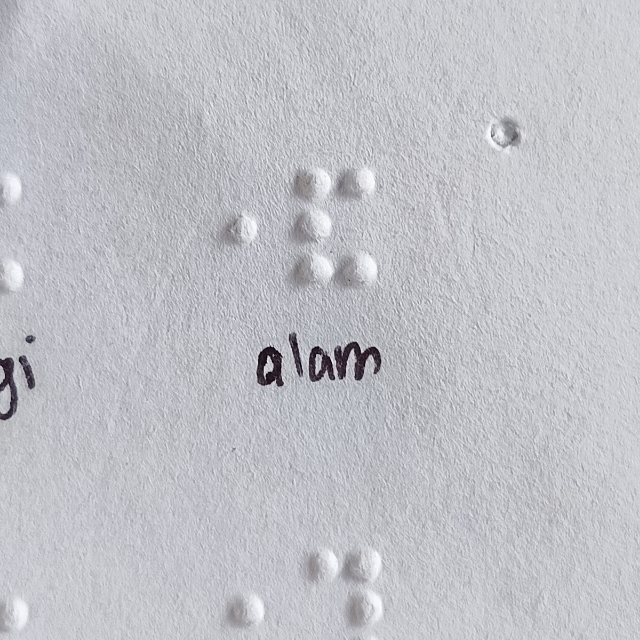 ⠐⠯
gi
alam